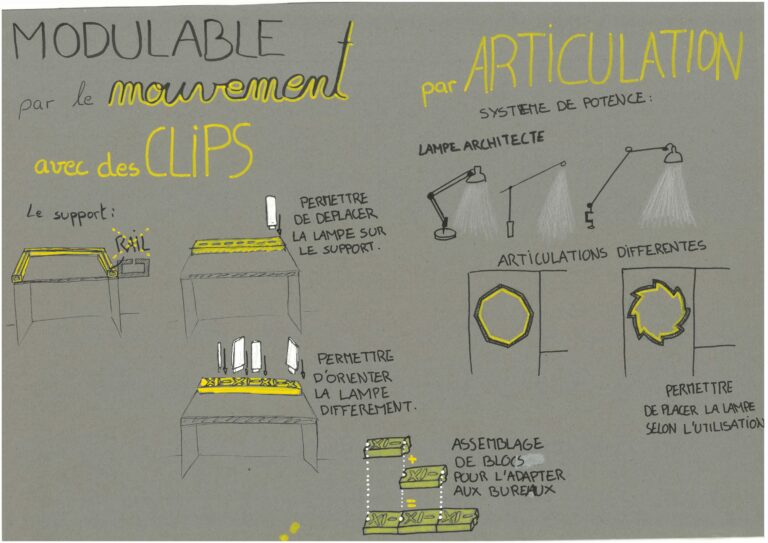 MODULABLE
par le mouvement
avec des CLIPS
Le support:
RAIL
PERMETTRE
DE DEPLACER
LA LAMPE SUR
LE SUPPORT.
PERMETTRE
D'ORIENTER
LA LAMPE
DIFFEREMENT.
ASSEMBLAGE
DE BLOCS
POUR L'ADAPTER
AUX BUREAUX
+
=
par ARTICULATION
SYSTEME DE POTENCE:
LAMPE ARCHITECTE
ARTICULATIONS DIFFERENTES
PERMETTRE
DE PLACER LA LAMPE
SELON L'UTILISATION